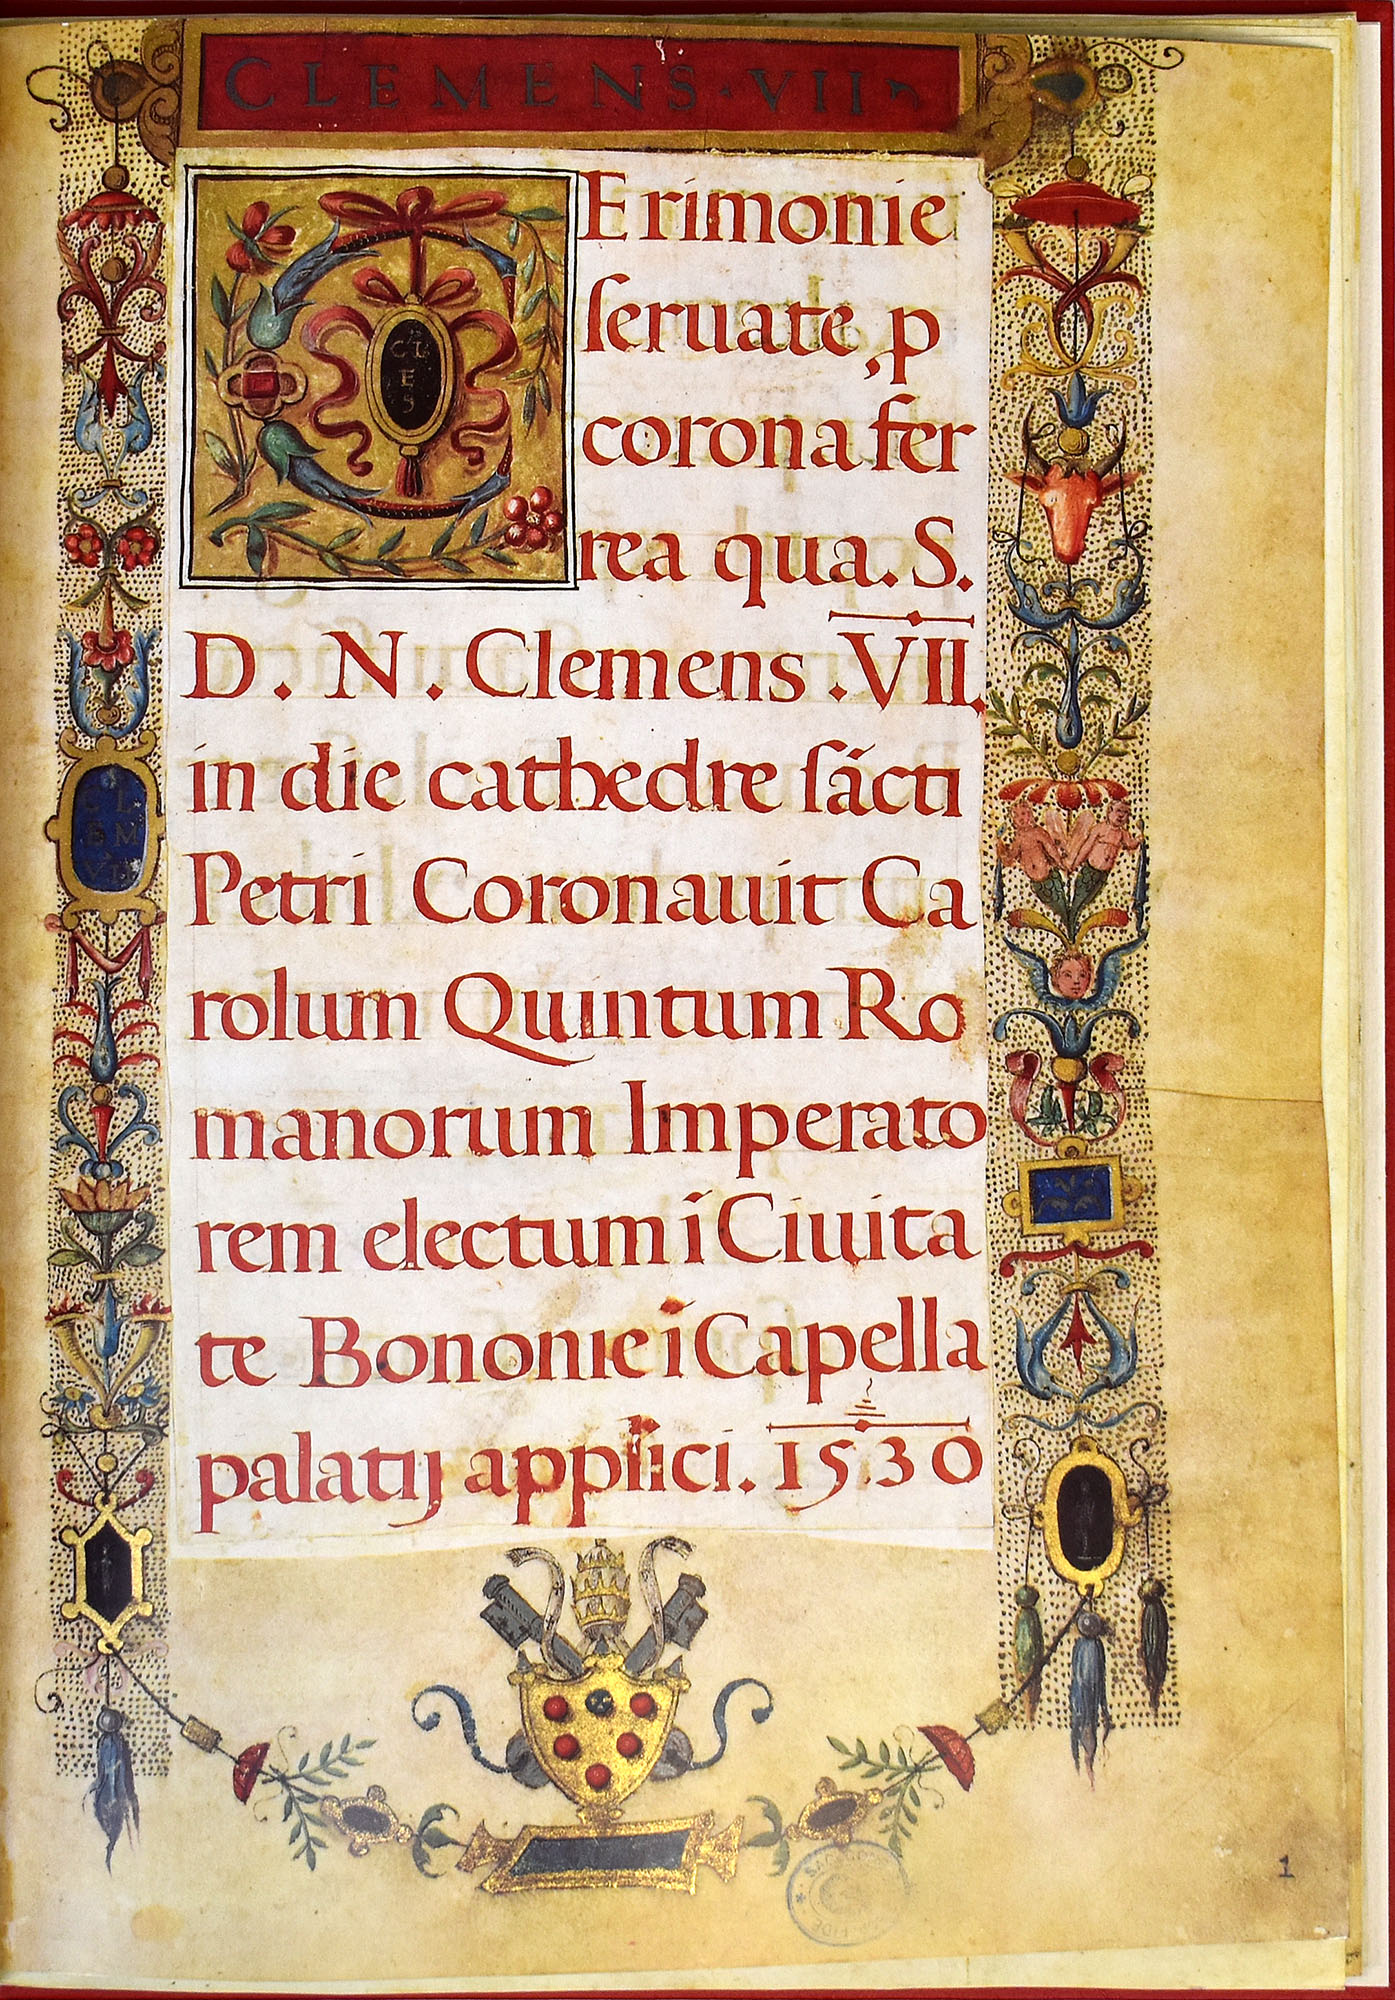 CLEMENS · VII
CL
E
S
CErimonie
seruate, p
corona fer
rea qua. S.
D. N. Clemens .VII.
in die cathedre sācti
Petri Coronauit Ca
rolum Quintum Ro
manorum Imperato
rem electum ī Ciuita
te Bononie ī Capella
palatij applici. 1530
CL
EM
VII
1